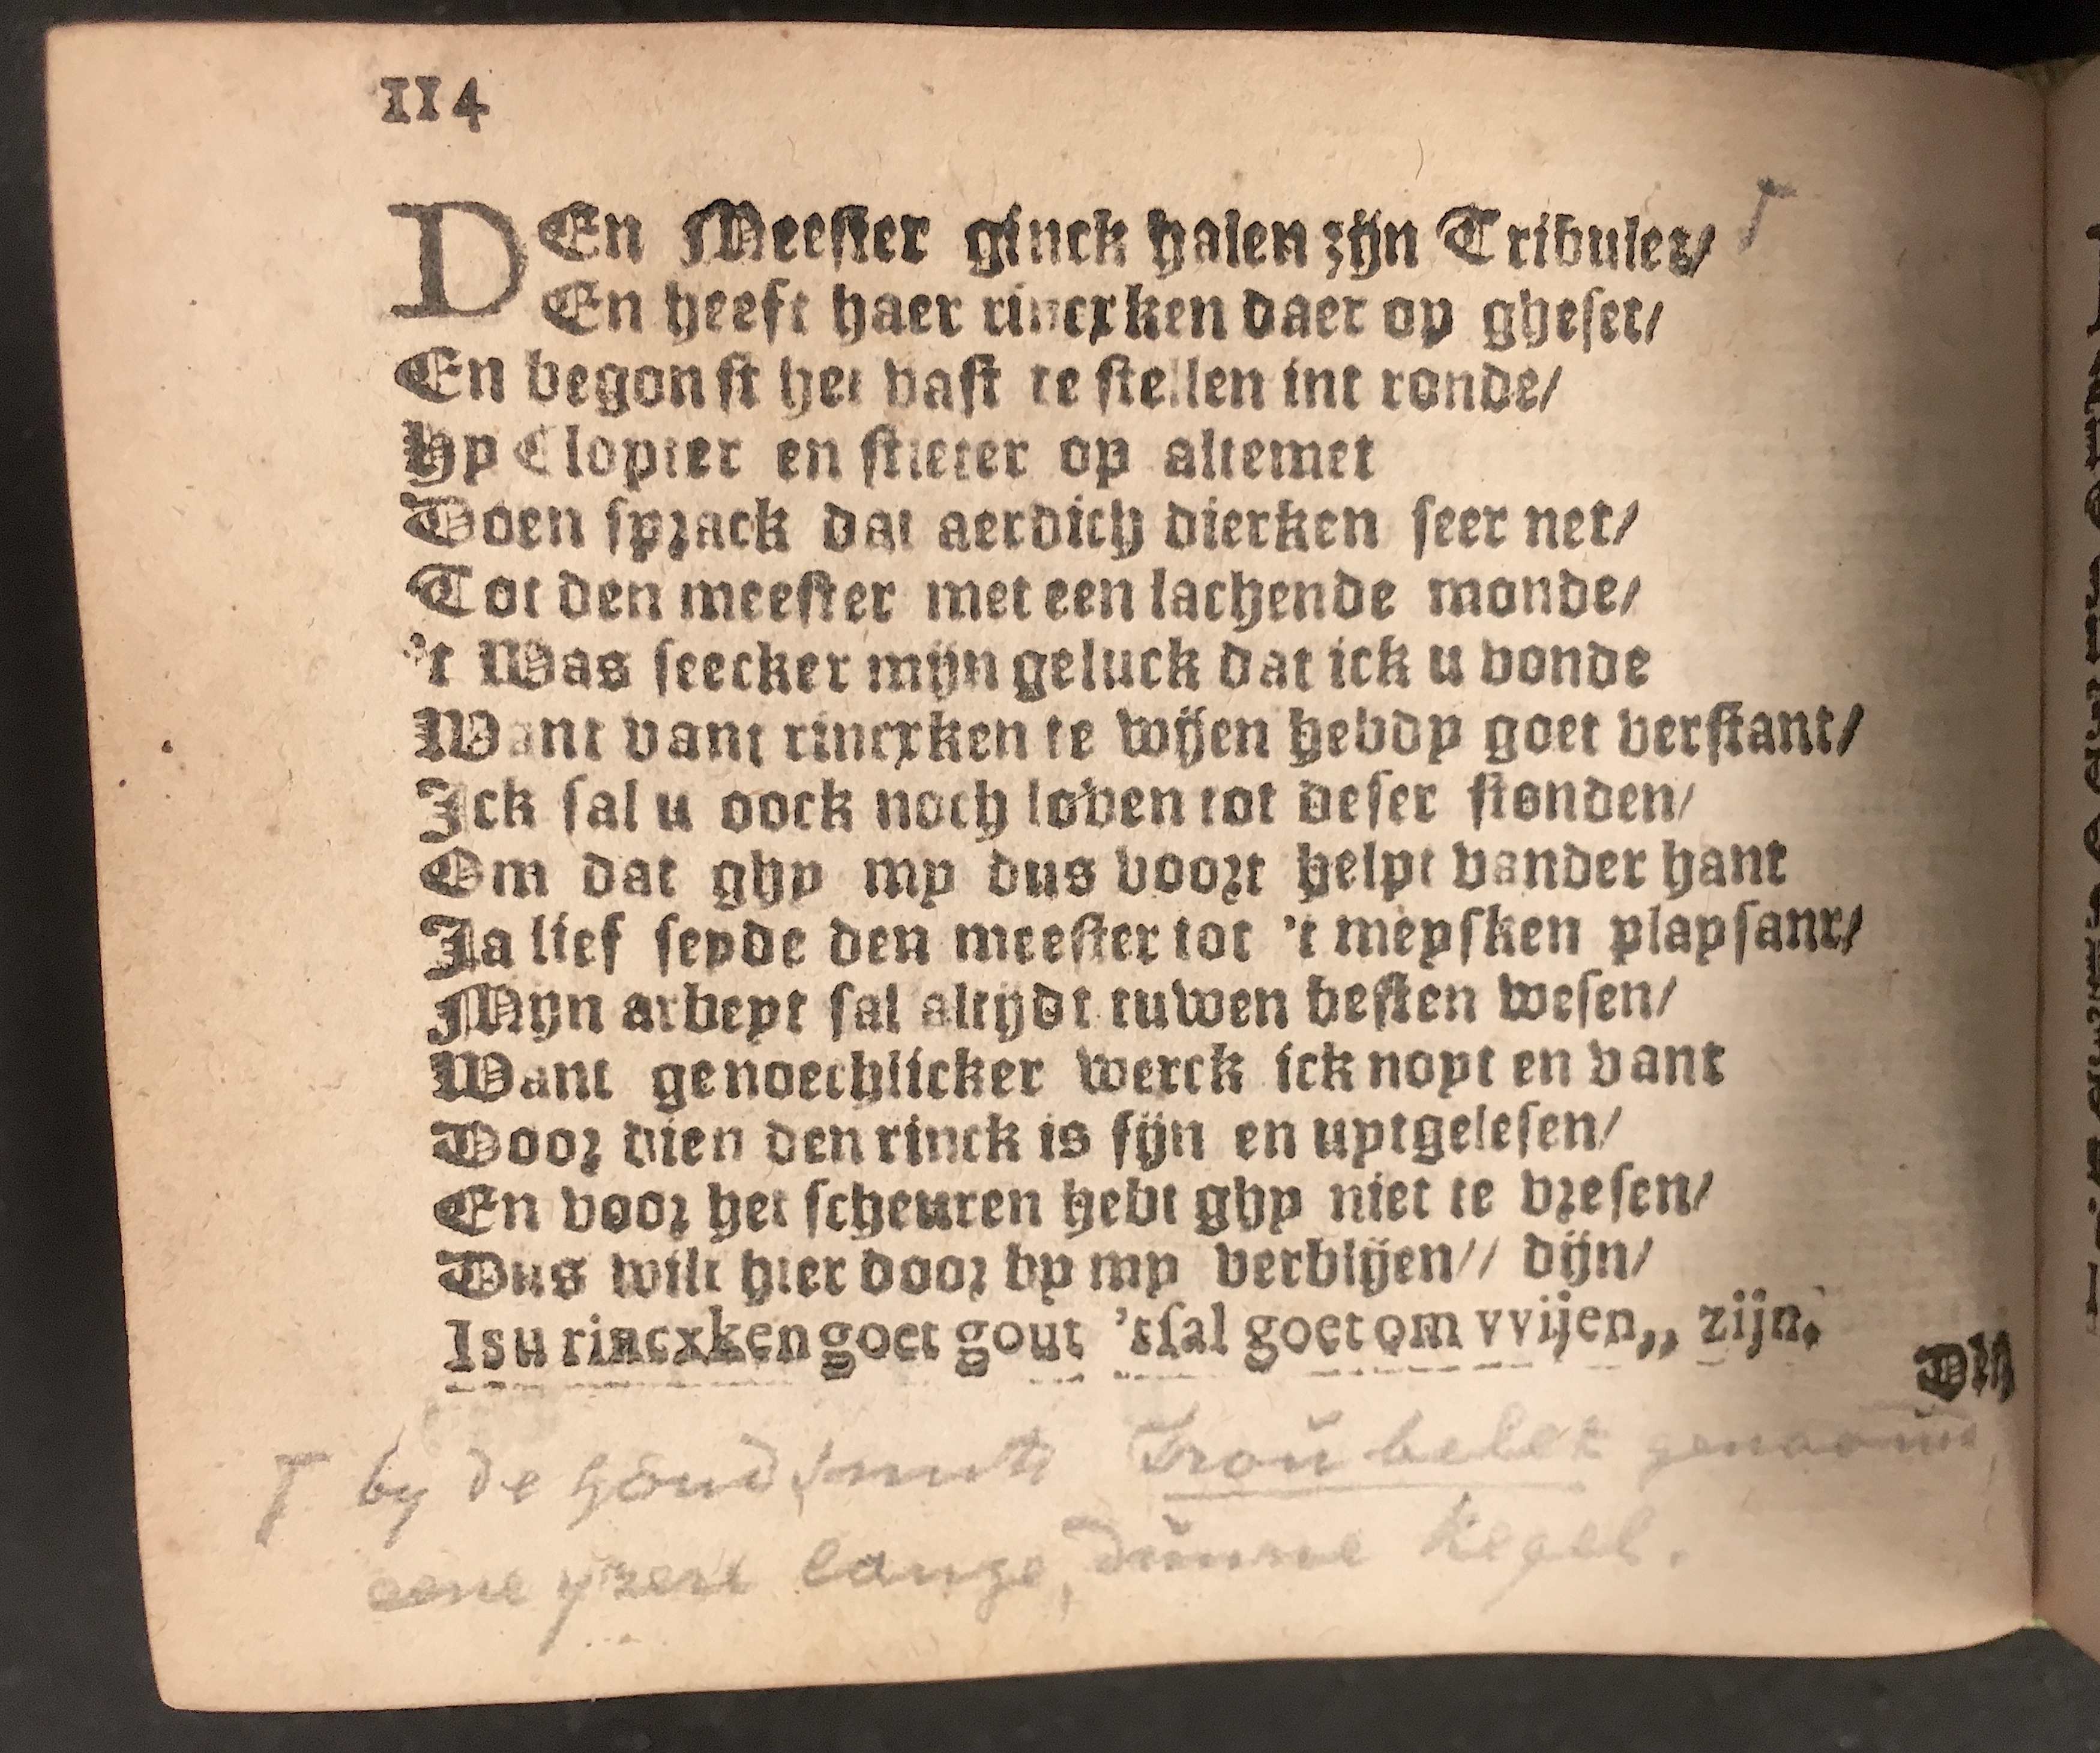 114
DEn Meester ginck halen zijn Tribulet/
En heeft haer rincxken daer op gheset/
En begonst het vast te stellen int ronde/
Hy Clopter en stieter op altemet
Doen sprack dat aerdich dierken seer net/
Tot den meester met een lachende monde/
't Was seecker mijn geluck dat ick u vonde
Want vant rincxken te wijen hebdy goet verstant/
Ick sal u oock noch loven tot deser stonden/
Om dat ghy my dus voort helpt vander hant
Ja lief seyde den meester tot 't meysken playsant/
Mijn arbeyt sal altijdt tuwen besten wesen/
Want genoechlicker werck ick noyt en vant
Door dien den rinck is fijn en uytgelesen/
En voor het scheuren hebt ghy niet te vresen/
Dus wilt hier door by my verblijen// dijn/
Is u rincxken goet gout 'tsal goet om vvijen,, zijn.
by de Goudsmits Troubelet genaamd,
eene yzere lange, dunne kegel.